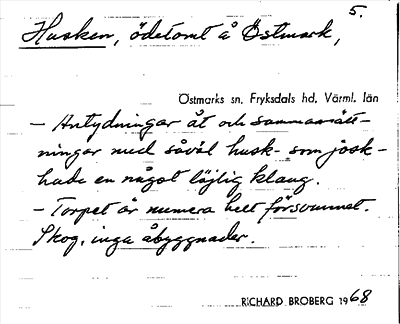 5.
Husken, ödetomt å Östmark,
Östmarks sn. Fryksdals hd. Värml. län
- Antydningar åt och sammansätt-
ningar med såväl husk- som josk-
hade en något löjlig klang.
- Torpet är numera helt försvunnet.
Skog, inga åbyggnader.
RICHARD BROBERG 1968